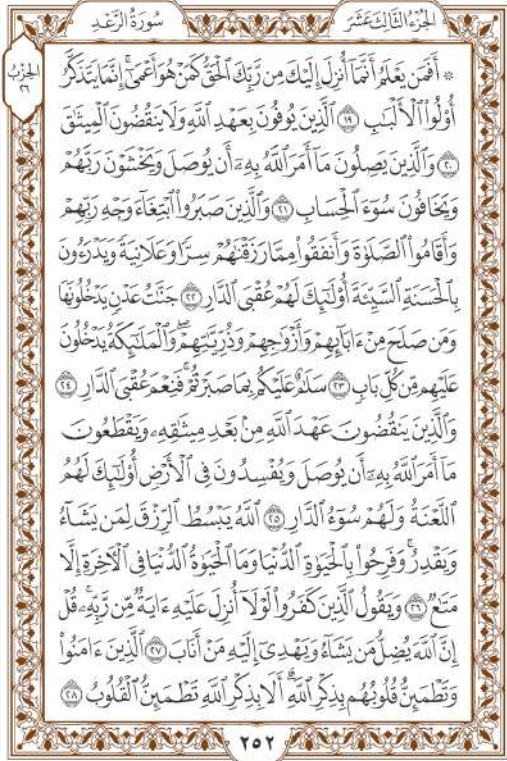 الجزء الثالث عشر
سورة الرعد
الحزب
٢٦
۞ أَفَمَن يَعْلَمُ أَنَّمَآ أُنزِلَ إِلَيْكَ مِن رَّبِّكَ ٱلْحَقُّ كَمَنْ هُوَ أَعْمَىٰٓ ۚ إِنَّمَا يَتَذَكَّرُ
أُو۟لُوا۟ ٱلْأَلْبَـٰبِ ١٩ ٱلَّذِينَ يُوفُونَ بِعَهْدِ ٱللَّهِ وَلَا يَنقُضُونَ ٱلْمِيثَـٰقَ
٢٠ وَٱلَّذِينَ يَصِلُونَ مَآ أَمَرَ ٱللَّهُ بِهِۦٓ أَن يُوصَلَ وَيَخْشَوْنَ رَبَّهُمْ
وَيَخَافُونَ سُوٓءَ ٱلْحِسَابِ ٢١ وَٱلَّذِينَ صَبَرُوا۟ ٱبْتِغَآءَ وَجْهِ رَبِّهِمْ
وَأَقَامُوا۟ ٱلصَّلَوٰةَ وَأَنفَقُوا۟ مِمَّا رَزَقْنَـٰهُمْ سِرًّا وَعَلَانِيَةً وَيَدْرَءُونَ
بِٱلْحَسَنَةِ ٱلسَّيِّئَةَ أُو۟لَـٰٓئِكَ لَهُمْ عُقْبَى ٱلدَّارِ ٢٢ جَنَّـٰتُ عَدْنٍ يَدْخُلُونَهَا
وَمَن صَلَحَ مِنْ ءَابَآئِهِمْ وَأَزْوَٰجِهِمْ وَذُرِّيَّـٰتِهِمْ ۖ وَٱلْمَلَـٰٓئِكَةُ يَدْخُلُونَ
عَلَيْهِم مِّن كُلِّ بَابٍ ٢٣ سَلَـٰمٌ عَلَيْكُم بِمَا صَبَرْتُمْ ۚ فَنِعْمَ عُقْبَى ٱلدَّارِ ٢٤
وَٱلَّذِينَ يَنقُضُونَ عَهْدَ ٱللَّهِ مِنۢ بَعْدِ مِيثَـٰقِهِۦ وَيَقْطَعُونَ
مَآ أَمَرَ ٱللَّهُ بِهِۦٓ أَن يُوصَلَ وَيُفْسِدُونَ فِى ٱلْأَرْضِ ۙ أُو۟لَـٰٓئِكَ لَهُمُ
ٱللَّعْنَةُ وَلَهُمْ سُوٓءُ ٱلدَّارِ ٢٥ ٱللَّهُ يَبْسُطُ ٱلرِّزْقَ لِمَن يَشَآءُ
وَيَقْدِرُ ۚ وَفَرِحُوا۟ بِٱلْحَيَوٰةِ ٱلدُّنْيَا وَمَا ٱلْحَيَوٰةُ ٱلدُّنْيَا فِى ٱلْـَٔاخِرَةِ إِلَّا
مَتَـٰعٌ ٢٦ وَيَقُولُ ٱلَّذِينَ كَفَرُوا۟ لَوْلَآ أُنزِلَ عَلَيْهِ ءَايَةٌ مِّن رَّبِّهِۦ ۗ قُلْ
إِنَّ ٱللَّهَ يُضِلُّ مَن يَشَآءُ وَيَهْدِىٓ إِلَيْهِ مَنْ أَنَابَ ٢٧ ٱلَّذِينَ ءَامَنُوا۟
وَتَطْمَئِنُّ قُلُوبُهُم بِذِكْرِ ٱللَّهِ ۗ أَلَا بِذِكْرِ ٱللَّهِ تَطْمَئِنُّ ٱلْقُلُوبُ ٢٨
٢٥٢